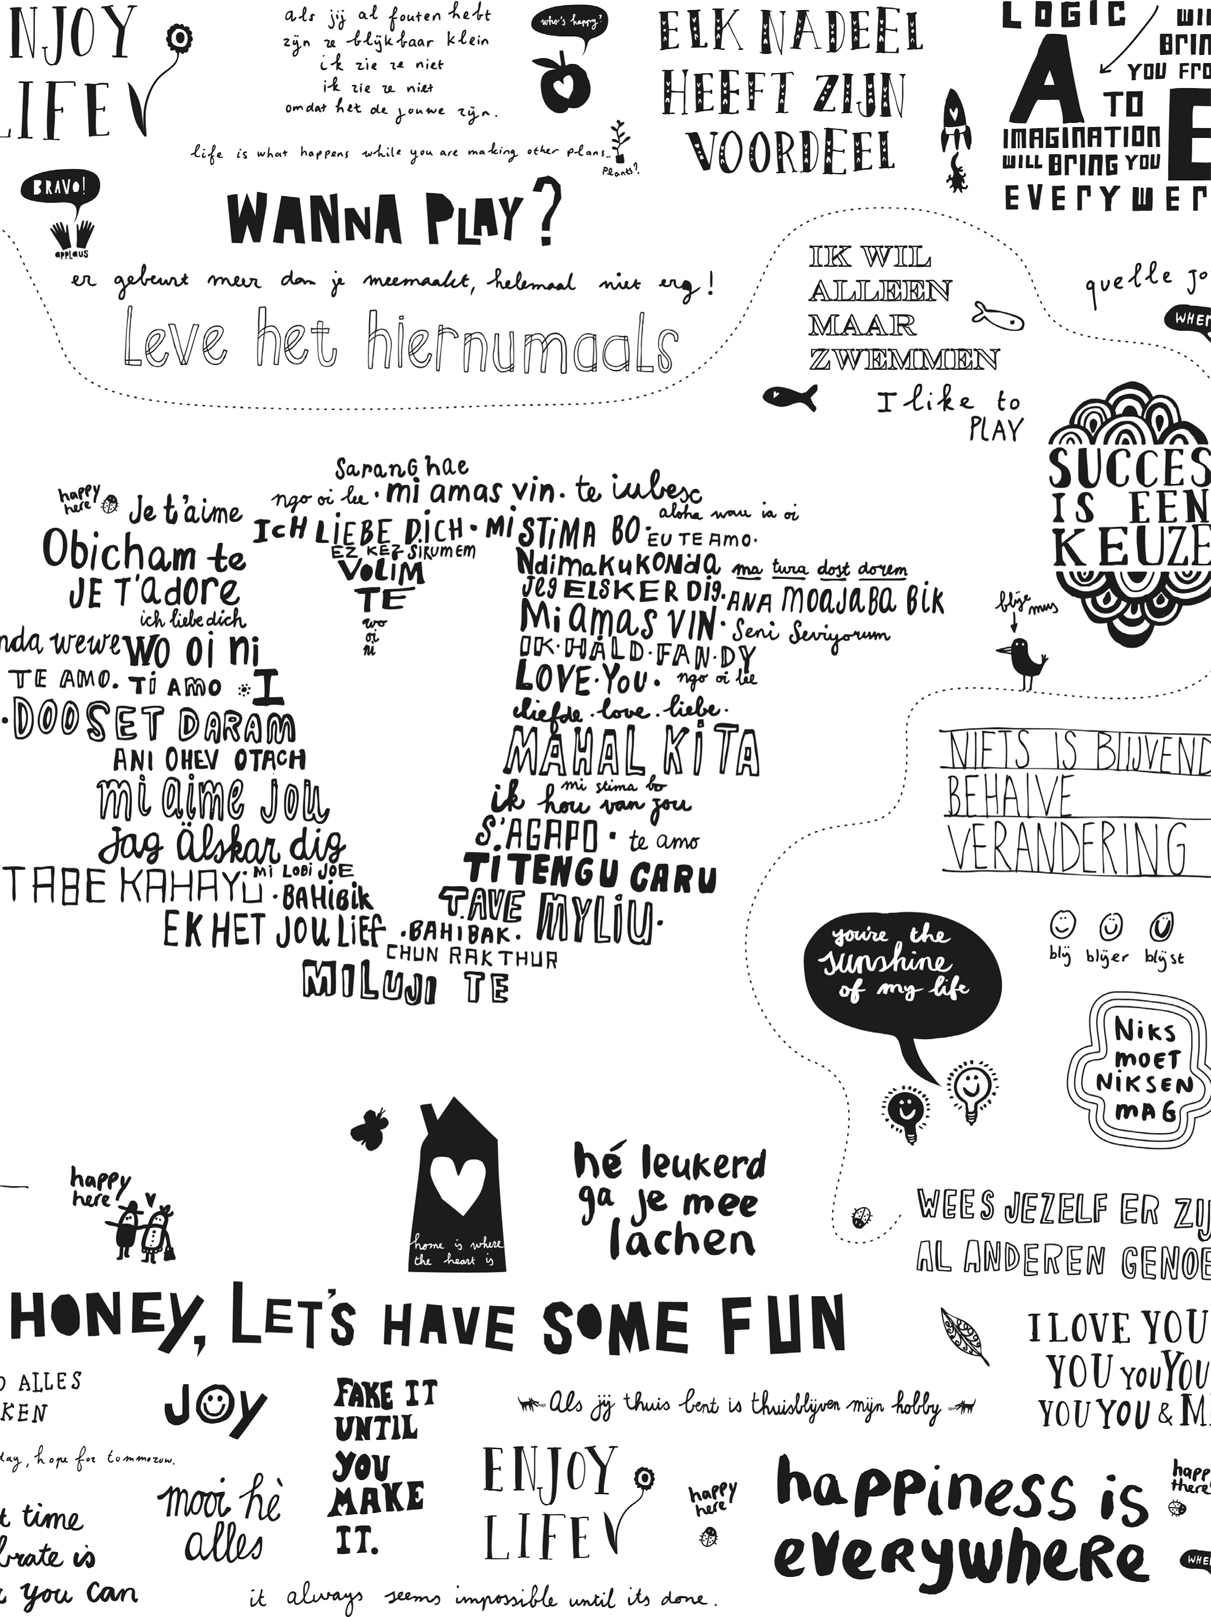 NJOY
LIFE
als jij al fouten hebt
zijn ze blijkbaar klein
ik zie ze niet
ik zie ze niet
omdat het de jouwe zijn.
who's happy?
ELK NADEEL
HEEFT ZIJN
VOORDEEL
LOGIC
WILL
BRING
YOU FRO
A
TO
IMAGINATION
WILL BRING YOU
EVERYWER
life is what happens while you are making other plans..
plants?
BRAVO!
applaus
WANNA PLAY?
er gebeurt meer dan je meemaakt, helemaal niet erg!
Leve het hiernumaals
IK WIL
ALLEEN
MAAR
ZWEMMEN
I like to
PLAY
quelle jo
WHEN
SUCCES
IS EEN
KEUZE
blije mus
happy
here
Sarang hae
ngo oi lee · mi amas vin · te iubesc
Je t'aime
aloha wau ia oi
ICH LIEBE DICH · MI STIMA BO · EU TE AMO ·
Obicham te
EZ KEZ SIRUMEM
VOLIM
TE
wo
oi
ni
Ndimakukonda ma tura dost dorem
JE T'adore
Jeg ELSKER DIG. ANA MOAJABA BIK
ich liebe dich
Mi AMAS VIN · Seni Seviyorum
nda wewe WO oi ni
IK · HÂLD · FAN · DY
TE AMO. Ti AMO I
LOVE · YOU · ngo oi lee
liefde · love · liebe ·
· DOOSET DARAM
MAHAL KITA
ANI OHEV OTACH
mi stima bo
mi aime jou
ik hou van jou
Jag Älskar dig
S'AGAPO · te amo
TABE KAHAYU MI LOBI JOE
· BAHIBIK
TI TENGU CARU
EK HET JOU LIEF · BAHIBAK ·
TAVE MYLIU ·
CHUN RAK THUR
MILUJI TE
NIETS IS BLIJVEND
BEHALVE
VERANDERING
you're the
sunshine
of my life
blij blijer blijst
Niks
moet
NIKSEN
mAG
happy
here
home is where
the heart is
hé leukerd
ga je mee
lachen
WEES JEZELF ER ZIJ
AL ANDEREN GENOE
HONEY, LET'S HAVE SOME FUN
I LOVE YOU
YOU YOU YOU
YOU YOU & M
ALLES
KEN
JOY
FAKE IT
UNTIL
YOU
MAKE
IT.
Als jij thuis bent is thuisblijven mijn hobby
day, hope for tommorow.
mooi hè
alles
ENJOY
LIFE
happy
here
happiness is
everywhere
happ
there
WHE
t time
brate is
you can
it always seems impossible until its done.